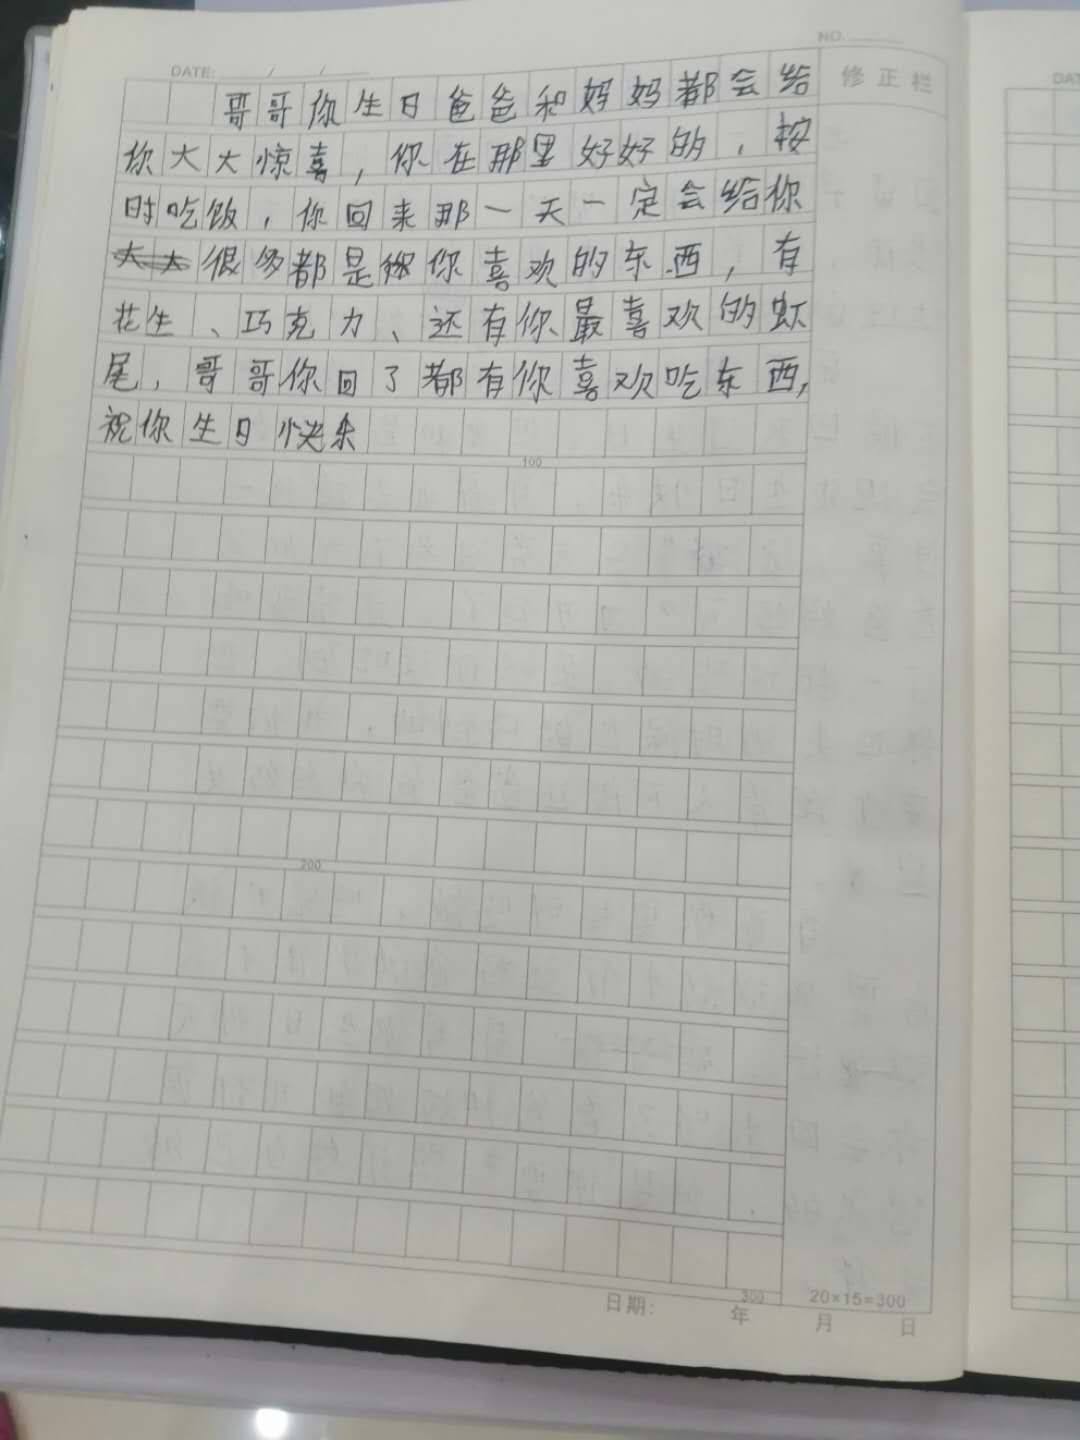 NO.
DATE: / /
修正栏
哥哥你生日爸爸和妈妈都会给
你大大惊喜，你在那里好好的，按
时吃饭，你回来那一天一定会给你
很多都是你喜欢的东西，有
花生、巧克力、还有你最喜欢的虾
尾，哥哥你回了都有你喜欢吃东西，
祝你生日快乐
100
200
300
20×15=300
日期: 年 月 日
DAT